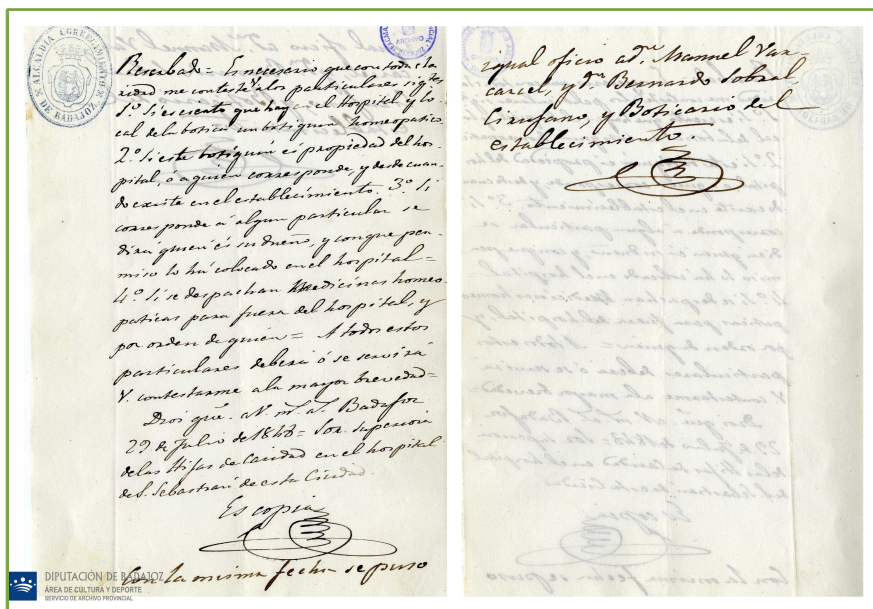 ALCALDIA CORREGIMIENTO DE BADAJOZ
ARCHIVO
Reserbado = Es necesario que con toda cla-
ridad me conteste V. a los particulares sigtes.
1.º Si es cierto que hay en el Hospital y lo-
cal de la botica un botiquin homeopatico
2.º Si este botiquin és propiedad del hos-
pital, ó a quien corresponde, y desde cuan-
do existe en el establecimiento. 3.º Si
corresponde á algun particular se
dirá quien és su dueño, y con que per-
miso lo há colocado en el hospital =
4.º Si se despachan medicinas homeo-
paticas para fuera del hospital, y
por orden de quien = A todos estos
particulares deberá ó se servirá
V. contestarme a la mayor brevedad =
Dios gue. a V. m.s a.s Badajoz
29 de Julio de 1848 = Sor. Superiora
de las Hijas de Caridad en el hospital
de S. Sebastian de esta Ciudad.
Es copia
Con la misma fecha se puso
igual oficio a d.n Manuel Var-
carcel, y d.n Bernardo Sobral
Cirujano, y Boticario del
establecimiento.
DIPUTACIÓN DE BADAJOZ
ÁREA DE CULTURA Y DEPORTE
SERVICIO DE ARCHIVO PROVINCIAL